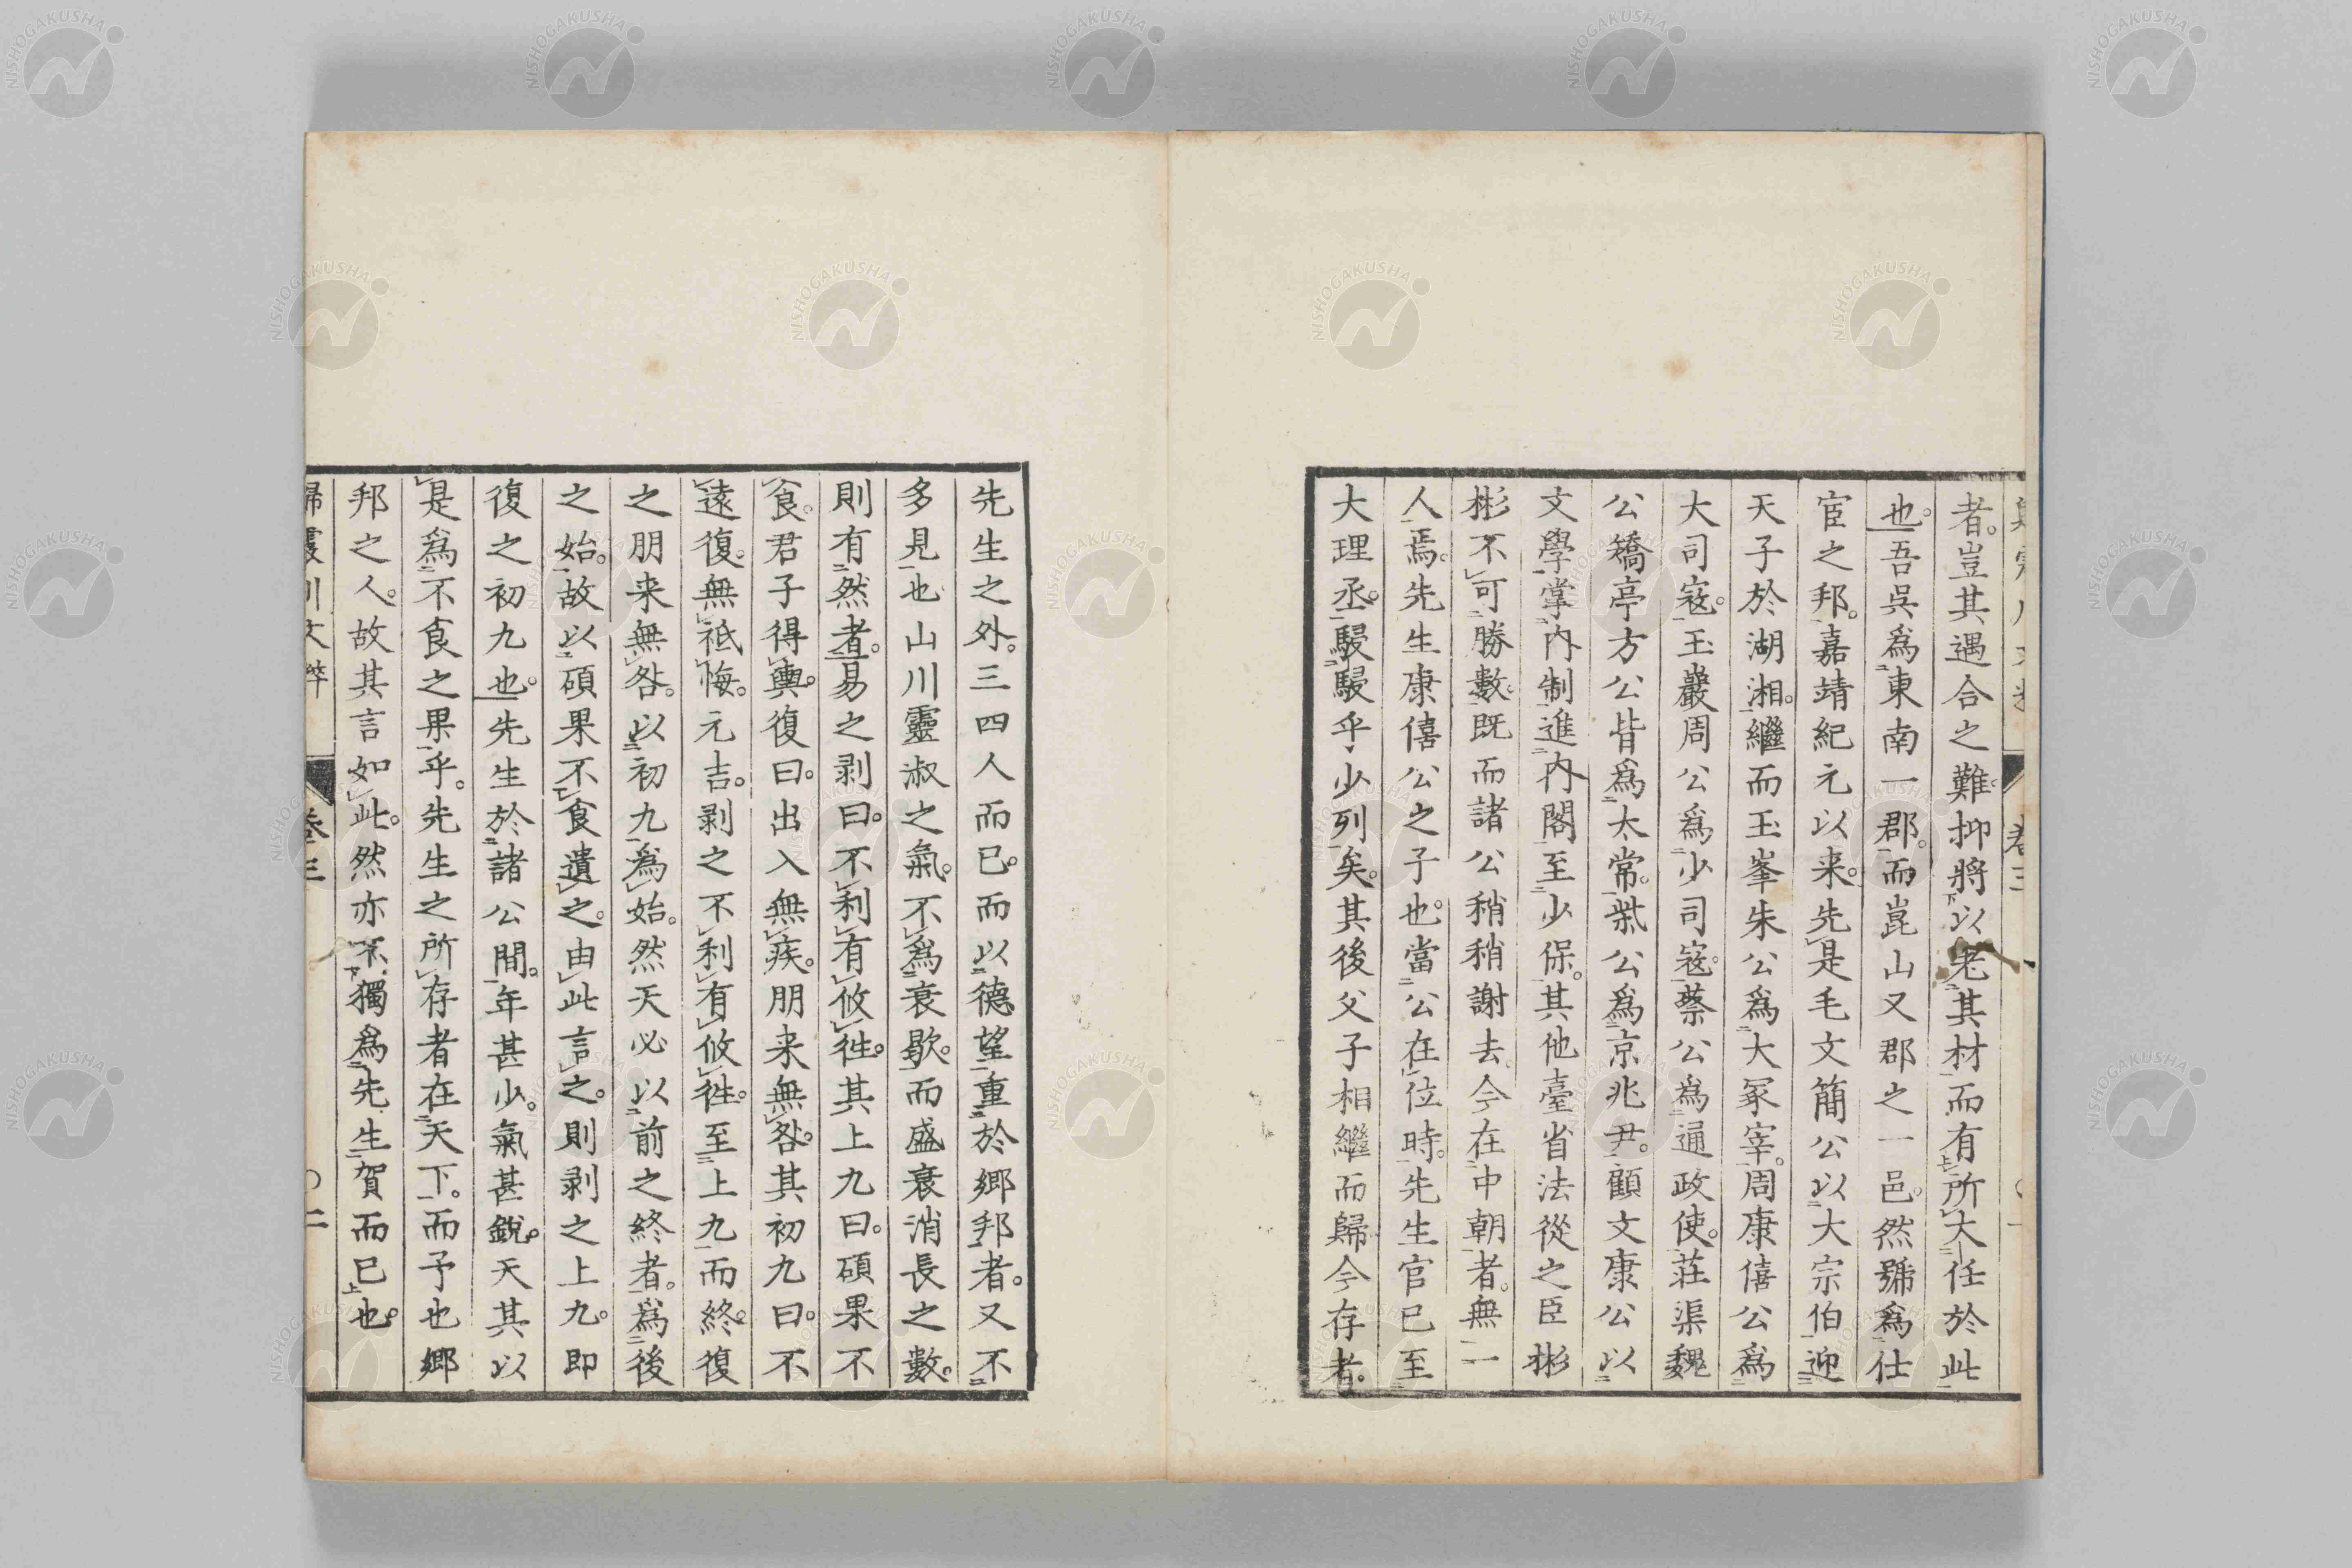 者。豈其遇合之難。抑將以老其材而有所大任於此
也。吾吳爲東南一郡。而崑山又郡之一邑。然號爲仕
宦之邦。嘉靖紀元以来。先是毛文簡公以大宗伯迎
天子於湖湘。繼而玉峯朱公爲大冢宰。周康僖公爲
大司寇。玉巖周公爲少司寇。蔡公爲通政使。莊渠魏
公矯亭方公皆爲太常。柴公爲京兆尹。顧文康公以
文學掌內制進內閣至少保。其他臺省法從之臣彬
彬不可勝數。既而諸公稍稍謝去。今在中朝者。無一
人焉。先生康僖公之子也。當公在位時。先生官已至
大理丞。駸駸乎少列矣。其後父子相繼而歸今存者。
先生之外。三四人而已。而以德望重於鄉邦者。又不
多見也山川靈淑之氣。不爲衰歇。而盛衰消長之數。
則有然者。易之剥曰。不利有攸徃。其上九曰。碩果不
食。君子得輿。復曰。出入無疾。朋来無咎。其初九曰。不
遠復。無祗悔。元吉。剥之不利有攸徃。至上九而終。復
之朋来無咎。以初九爲始。然天必以前之終者。爲後
之始。故以碩果不食遺之。由此言之。則剥之上九。即
復之初九也。先生於諸公間。年甚少。氣甚銳。天其以
是爲不食之果乎。先生之所存者在天下。而予也鄉
邦之人。故其言如此。然亦不獨爲先生賀而已也。
歸震川文粹
卷三
二
NISHOGAKUSHA